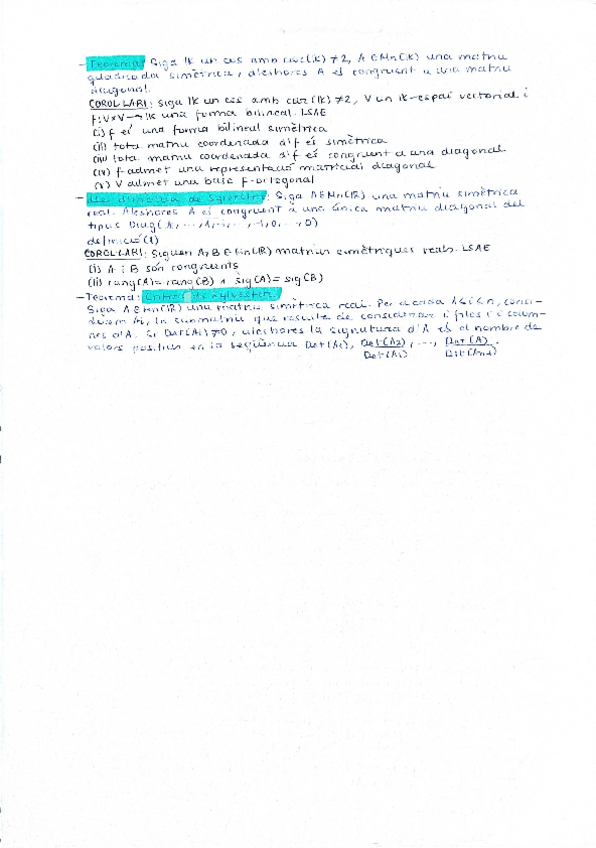 - Teorema: Siga IK un cos amb car(IK) ≠ 2, A ∈ Mn(IK) una matriu
quadrada simètrica, aleshores A és congruent a una matriu
diagonal.
COROL·LARI: Siga IK un cos amb car(IK) ≠ 2, V un IK-espai vectorial i
f: V×V → IK una forma bilineal. LSAE
(i) f és una forma bilineal simètrica
(ii) tota matriu coordenada d'f és simètrica
(iii) tota matriu coordenada d'f és congruent a una diagonal
(iv) f admet una representació matricial diagonal
(v) V admet una base f-ortogonal
- Llei d'inèrcia de Sylvester: Siga A ∈ Mn(IR) una matriu simètrica
real. Aleshores A és congruent a una única matriu diagonal del
tipus Diag(1, ..., 1, -1, ..., -1, 0, ..., 0)
definició(1)
COROL·LARI: Siguen A, B ∈ Mn(IR) matrius simètriques reals. LSAE
(i) A i B són congruents
(ii) rang(A) = rang(B) ∧ sig(A) = sig(B)
- Teorema: Criteri de Sylvester:
Siga A ∈ Mn(IR) una matriu simètrica real. Per a cada 1≤i≤n, consi-
derem Ai, la submatriu que resulta de considerar i files i i colum-
nes d'A. Si Det(Ai) ≠ 0, aleshores la signatura d'A és el nombre de
valors positius en la seqüència Det(A1), Det(A2)/Det(A1), ..., Det(A)/Det(An-1).